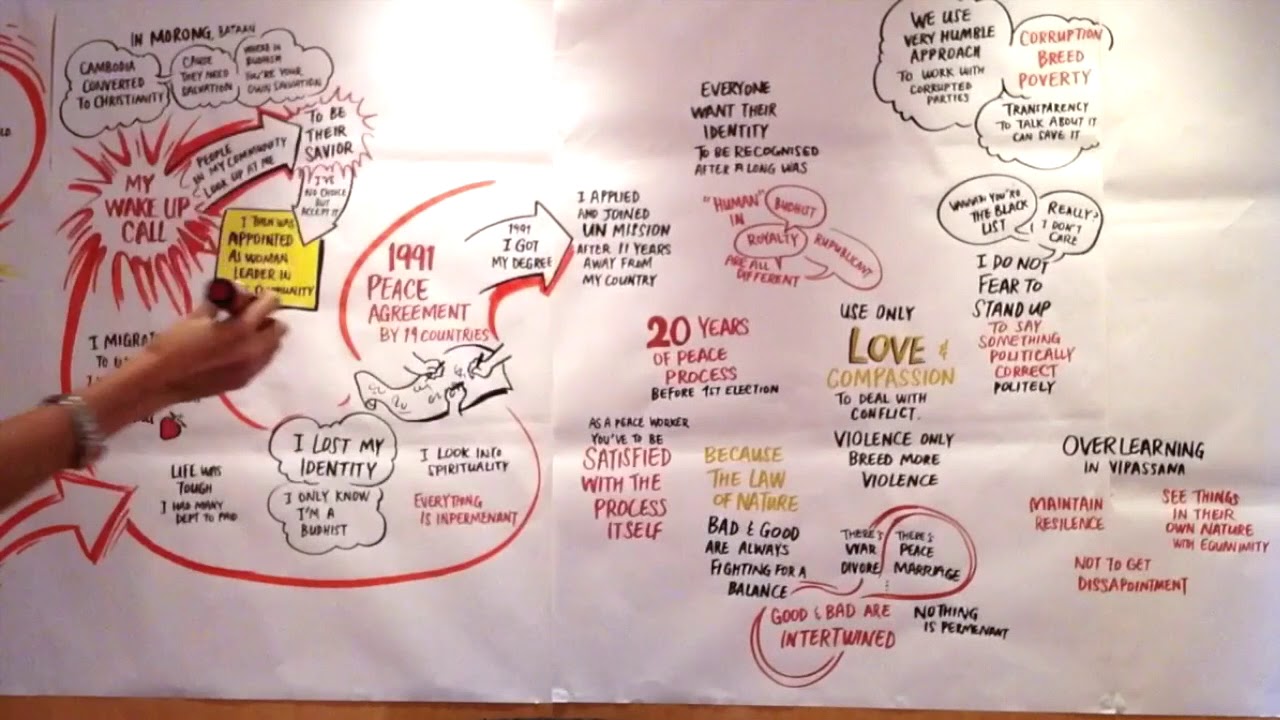 IN MORONG, BATAAN
CAMBODIA
CONVERTED
TO CHRISTIANITY
CAUSE
THEY NEED
SALVATION
WHERE IN
BUDHISM
YOU'RE YOUR
OWN SALVATION
MY
WAKE UP
CALL
PEOPLE
IN MY COMMUNITY
LOOK UP AT ME
TO BE
THEIR
SAVIOR
I'VE
NO CHOICE
BUT
ACCEPT IT
I THEN WAS
APPOINTED
AS WOMAN
LEADER IN
I MIGRAT
TO
LIFE WAS
TOUGH
I HAD MANY
DEPT TO PAID
I LOST MY
IDENTITY
I ONLY KNOW
I'M A
BUDHIST
I LOOK INTO
SPIRITUALITY
EVERYTHING
IS INPERMENANT
1991
PEACE
AGREEMENT
BY 19 COUNTRIES
1991
I GOT
MY DEGREE
I APPLIED
AND JOINED
UN MISSION
AFTER 11 YEARS
AWAY FROM
MY COUNTRY
EVERYONE
WANT THEIR
IDENTITY
TO BE RECOGNISED
AFTER A LONG WAS
"HUMAN"
IN
BUDHIST
ROYALTY
REPUBLICANT
ARE ALL
DIFFERENT
20 YEARS
OF PEACE
PROCESS
BEFORE 1ST ELECTION
AS A PEACE WORKER
YOU'VE TO BE
SATISFIED
WITH THE
PROCESS
ITSELF
BECAUSE
THE LAW
OF NATURE
BAD & GOOD
ARE ALWAYS
FIGHTING FOR A
BALANCE
THERE'S
WAR
DIVORE
THERE'S
PEACE
MARRIAGE
GOOD & BAD ARE
INTERTWINED
NOTHING
IS PERMENANT
USE ONLY
LOVE &
COMPASSION
TO DEAL WITH
CONFLICT.
VIOLENCE ONLY
BREED MORE
VIOLENCE
WE USE
VERY HUMBLE
APPROACH
TO WORK WITH
CORRUPTED
PARTIES
CORRUPTION
BREED
POVERTY
TRANSPARENCY
TO TALK ABOUT IT
CAN SAVE IT
YOU'RE
THE BLACK
LIST
REALLY?
I DON'T
CARE
I DO NOT
FEAR TO
STAND UP
TO SAY
SOMETHING
POLITICALLY
CORRECT
POLITELY
OVERLEARNING
IN VIPASSANA
MAINTAIN
RESILENCE
SEE THINGS
IN THEIR
OWN NATURE
WITH EQUANIMITY
NOT TO GET
DISSAPOINTMENT